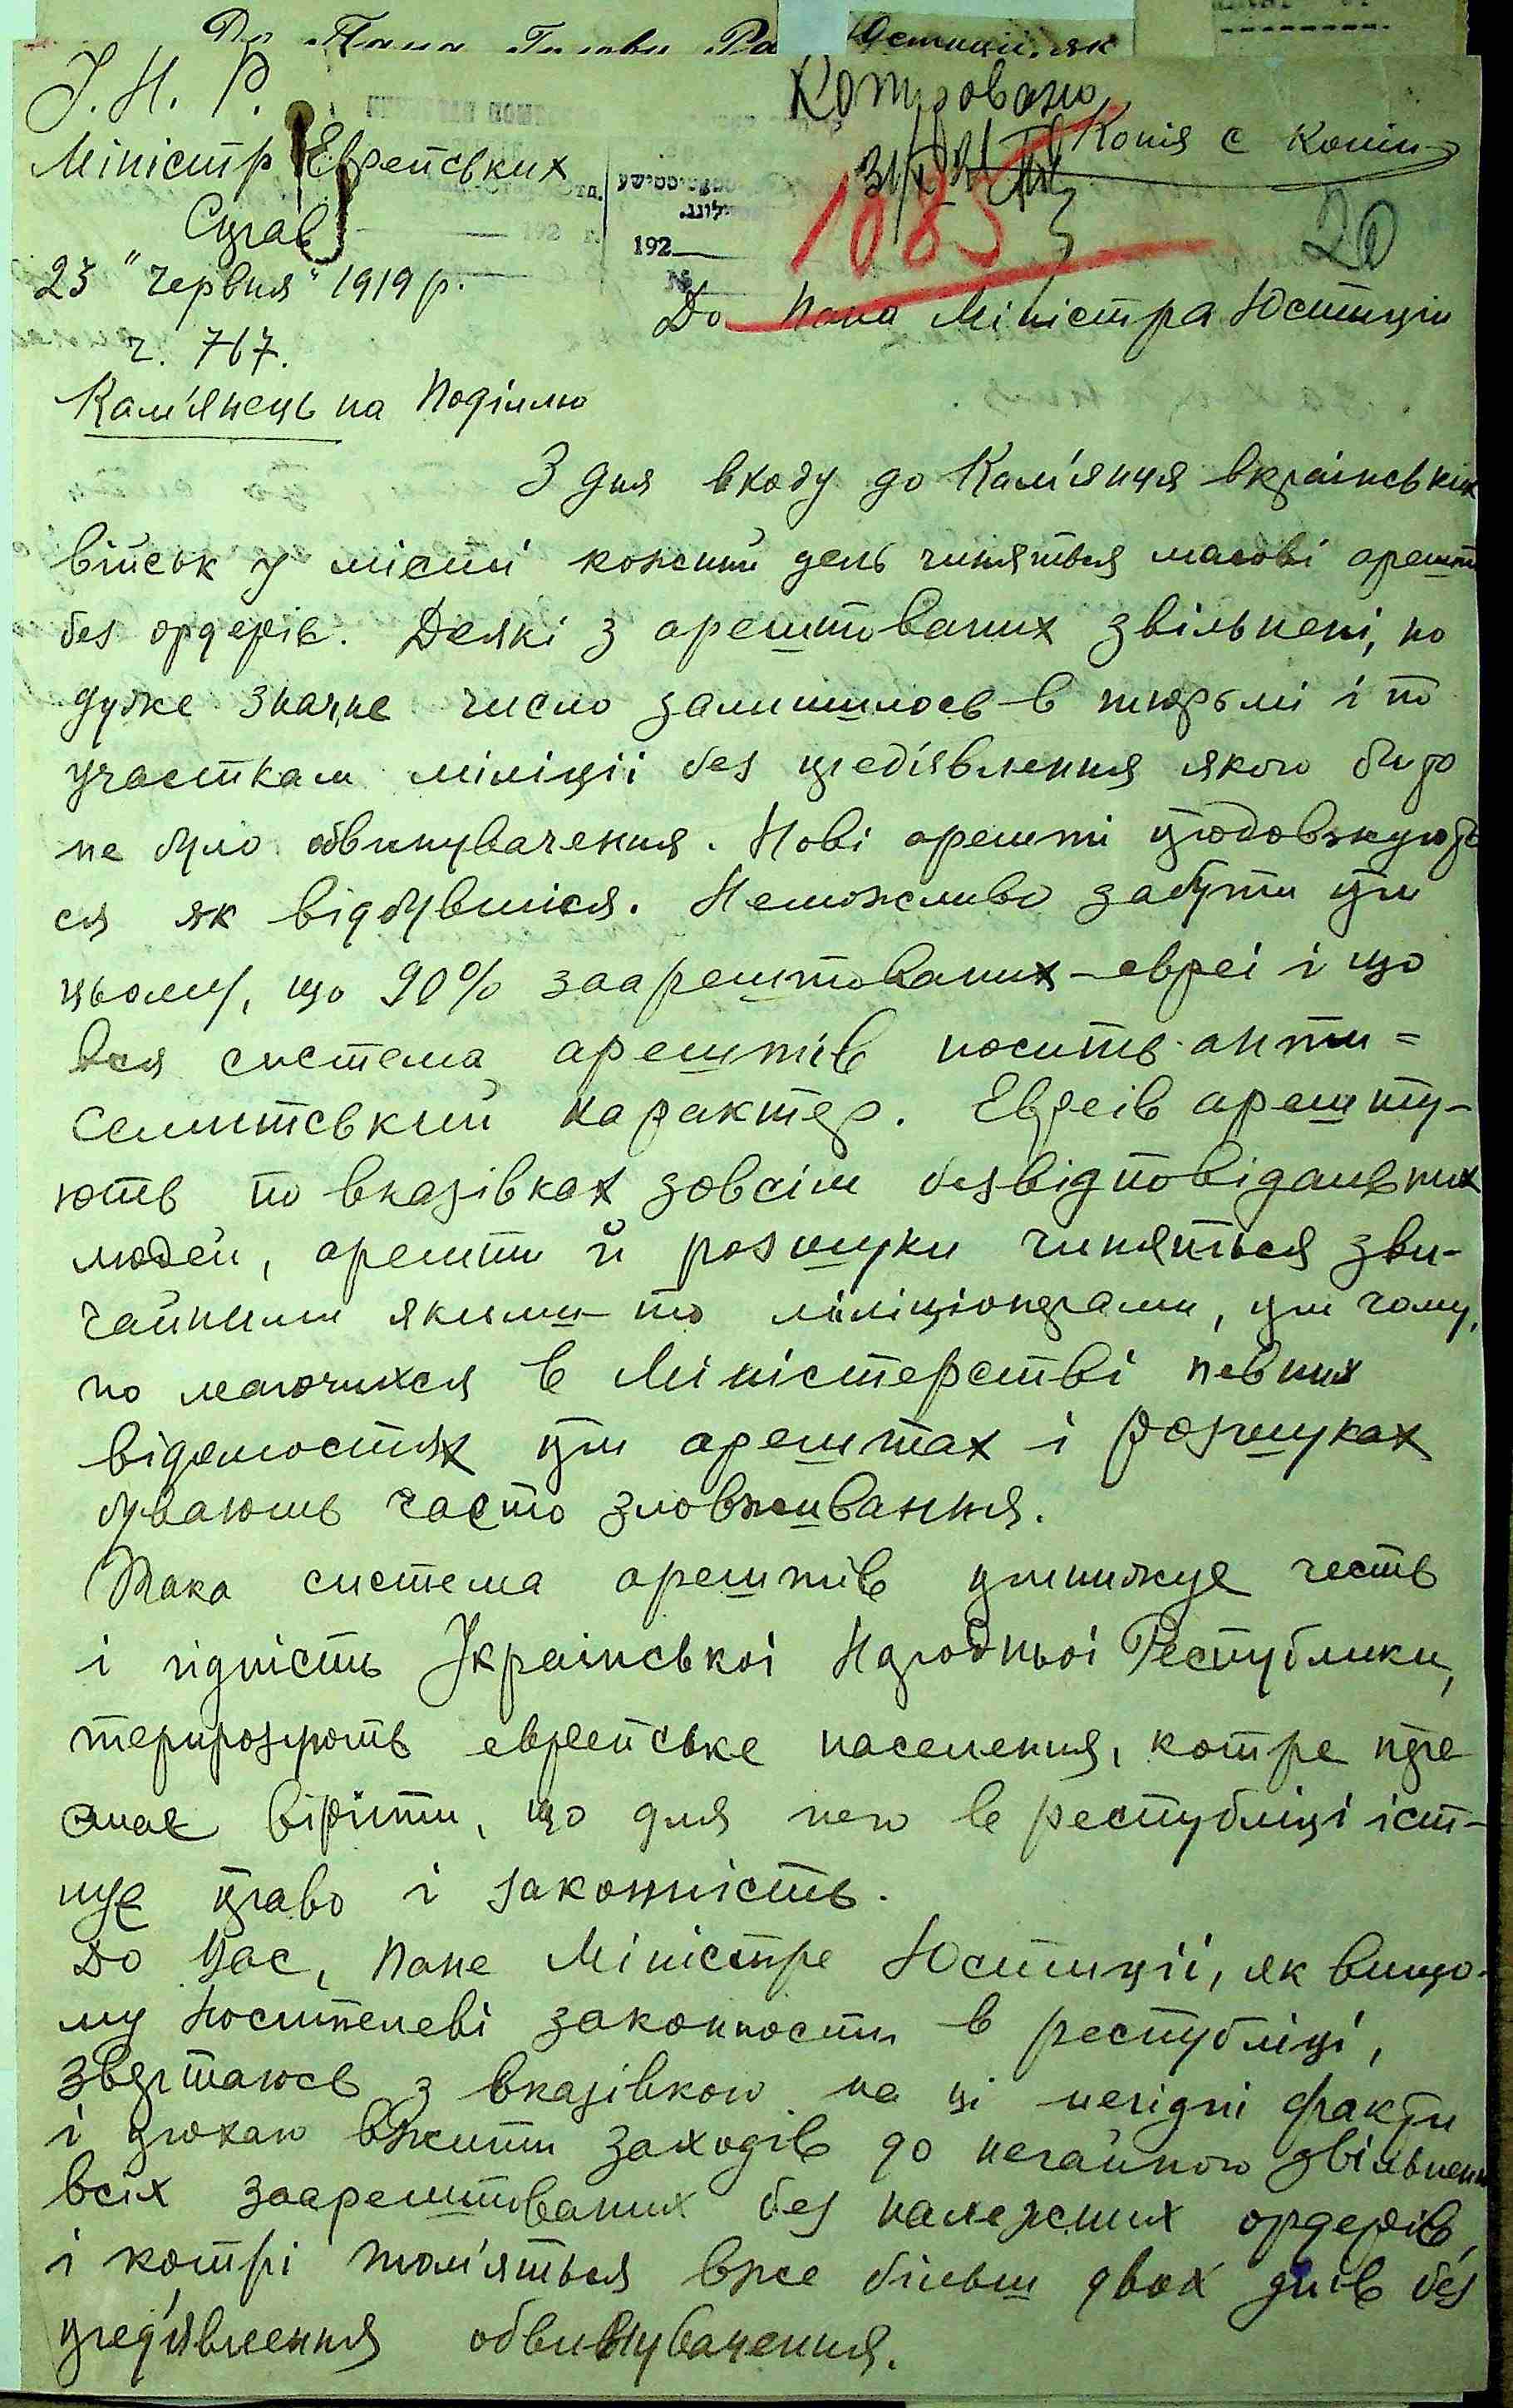 У. Н. Р.
Копировано
Міністр Еврейських
Копія с копіи
Справ
31/X
1085
20
192 г.
192
№
23 "червня" 1919 р.
До Пана Міністра Юстиціи
ч. 767.
Кам'янець на Поділлю
З дня входу до Кам'янця вкраінських
військ у місті кожний день чиняться масові арешти
без ордерів. Деякі з арештованих звільнені, но
дуже значне число залишилось в тюрьмі і по
участкам міліціі без предіявлення якого би то
не було обвинувачення. Нові арешти продовжують
ся як відбувшіся. Неможливо забути при
цьому, що 90% заарештованих - евреі і що
вся система арештів носить анти=
семитський характер. Евреів арешту-
ють по вказівках зовсім безвідповідальних
людей, арешти й розшуки чиняться зви-
чайними якими-то міліціонерами, при чому,
по маючихся в Міністерстві певних
відомостях при арештах і розшуках
бувають часто зловживання.
Така система арештів принижує честь
і гідність Украінськоі Народньоі Республики,
терироризують еврейське населення, котре пере
стає вірити, що для него в республіці іст-
нує право і законність.
До Вас, Пане Міністре Юстиціі, як вищо-
му носителеві законности в республіці,
звертаюсь з вказівкою на ці негідні факти
і прохаю вжити заходів до негайного звільнення
всіх заарештованих без належних ордерів,
і котрі томляться вже більш двох днів без
пред'явлення обвинувачення.